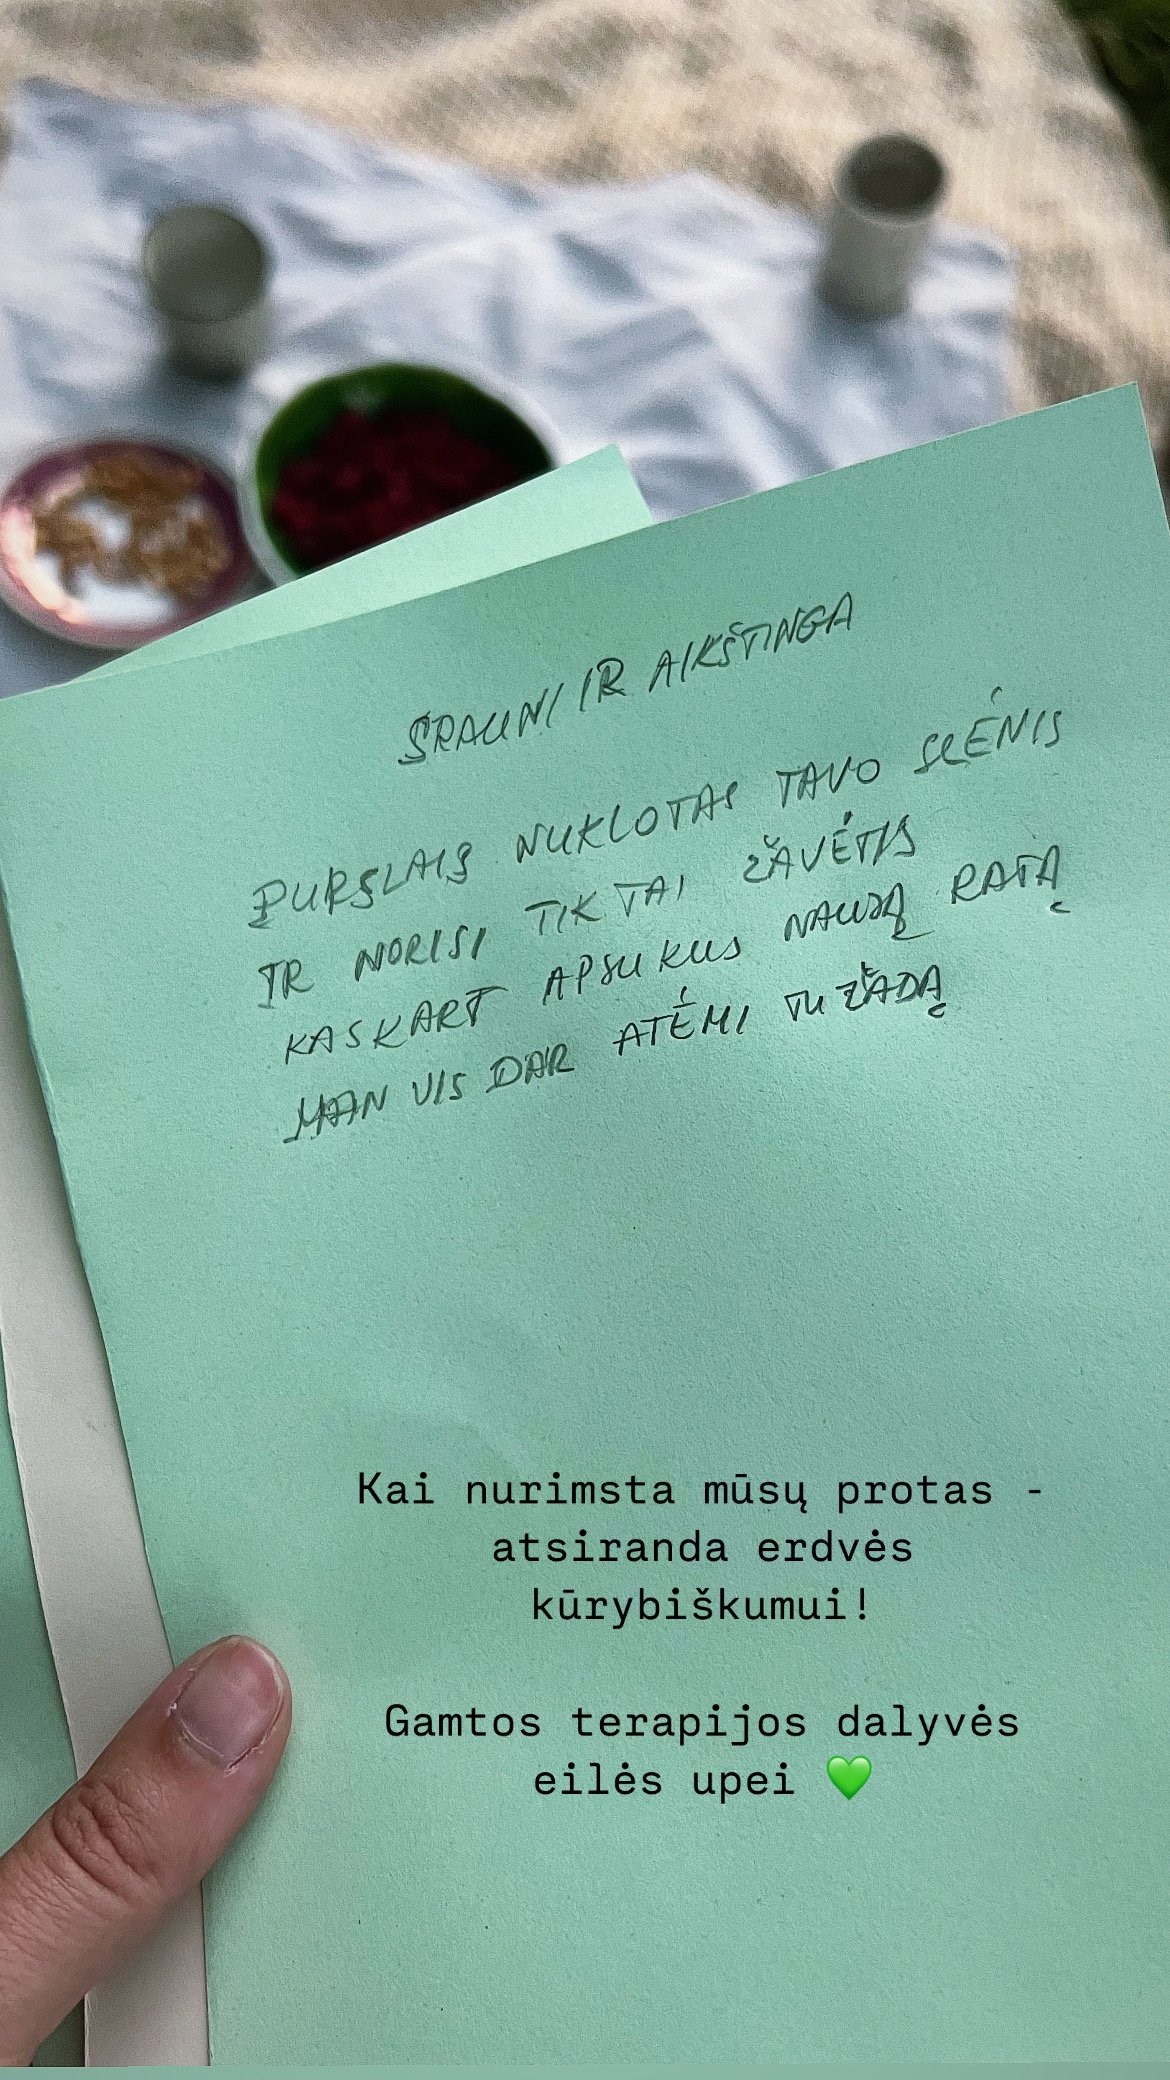 SRAUNI IR AIKŠTINGA
PURSLAIS NUKLOTAS TAVO SLĖNIS
IR NORISI TIK TAI ŽAVĖTIS
KASKART APSUKUS NAUJĄ RATĄ
MAN VIS DAR ATĖMI TU ŽADĄ
Kai nurimsta mūsų protas -
atsiranda erdvės
kūrybiškumui!
Gamtos terapijos dalyvės
eilės upei 💚